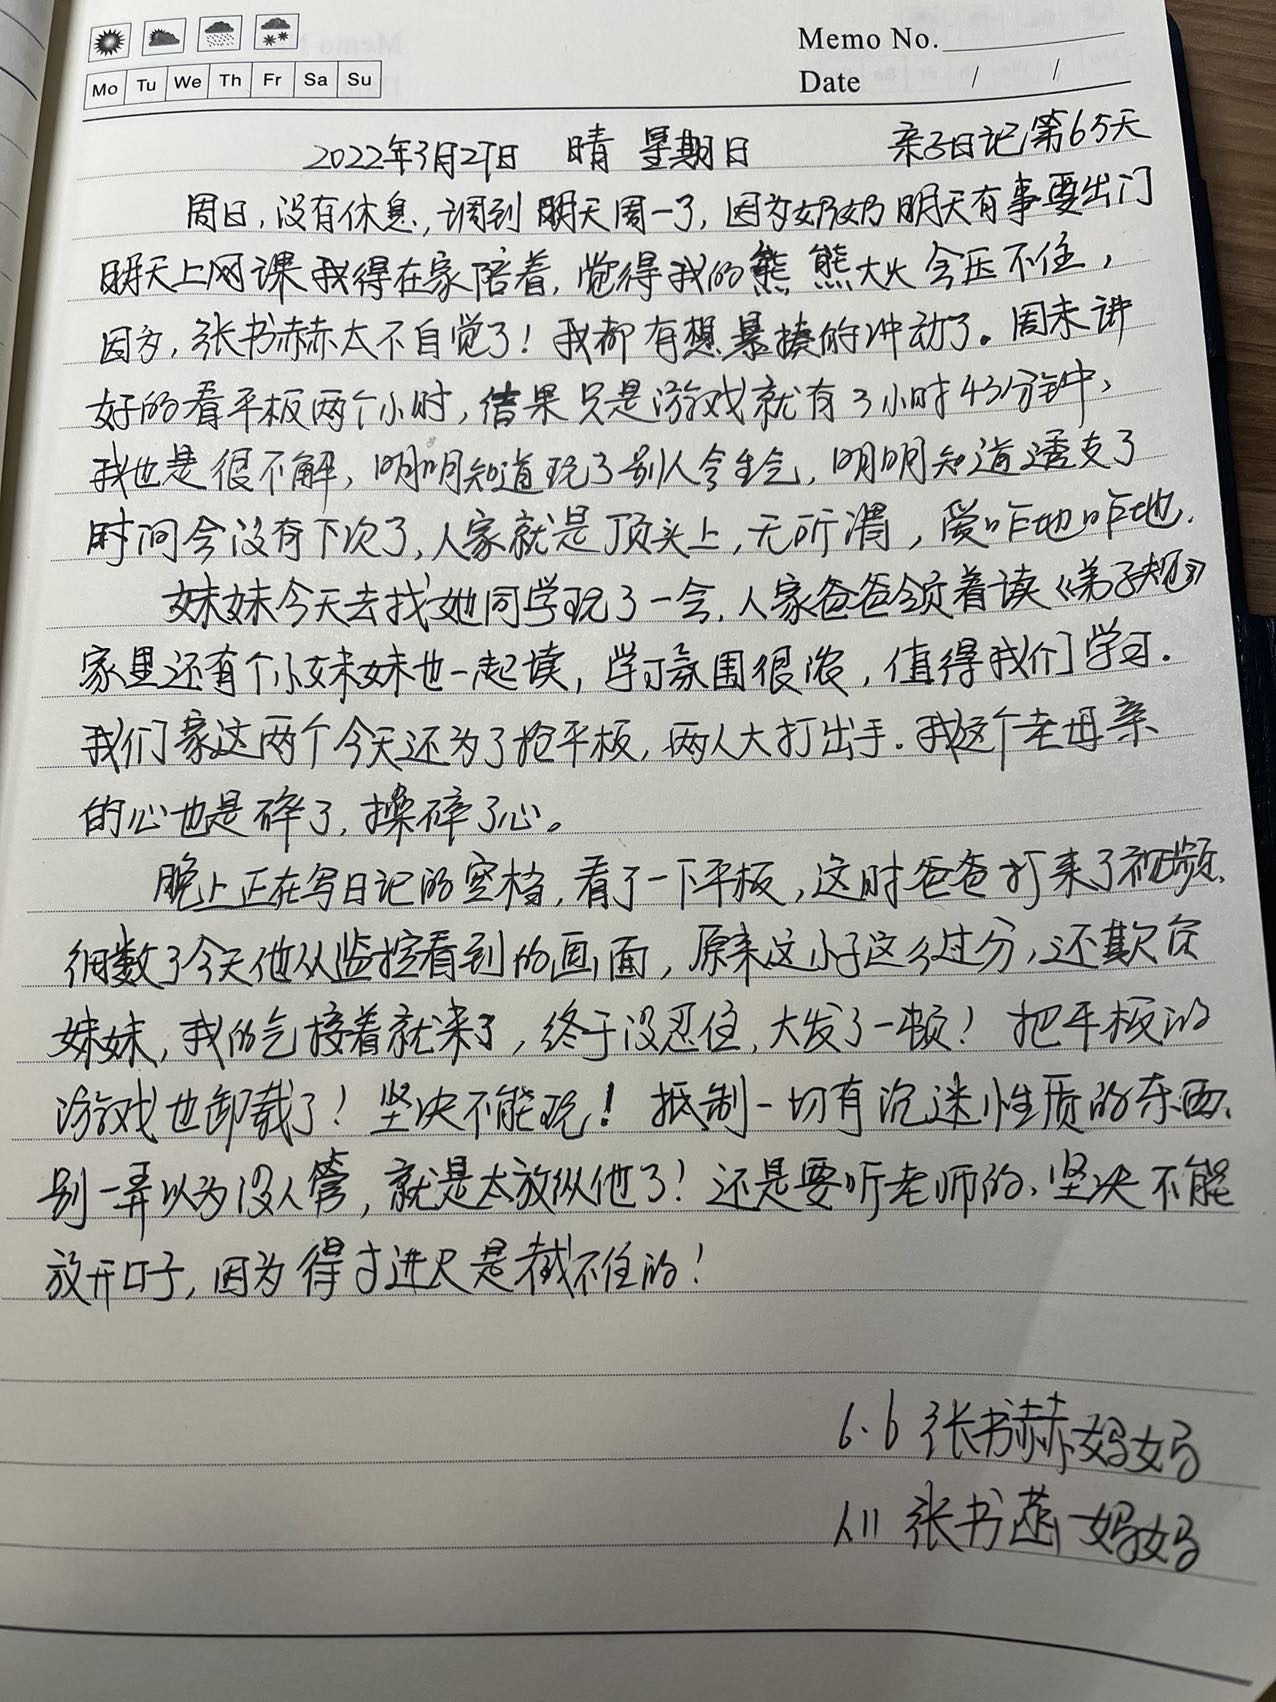 Memo No.
Mo Tu We Th Fr Sa Su
Date / /
2022年3月27日 晴 星期日 亲子日记第65天
周日,没有休息,调到明天周一了,因为奶奶明天有事要出门
明天上网课我得在家陪着,觉得我的熊熊大火会压不住,
因为,张书赫太不自觉了!我都有想暴揍的冲动了。周末讲
好的看平板两个小时,结果只是游戏就有3小时43分钟,
我也是很不解,明明知道玩了别人会生气,明明知道透支了
时间会没有下次了,人家就是顶头上,无所谓,爱咋地咋地.
妹妹今天去找她同学玩了一会,人家爸爸领着读《弟子规》
家里还有个小妹妹也一起读,学习氛围很浓,值得我们学习.
我们家这两个今天还为了抢平板,两人大打出手.我这个老母亲
的心也是碎了,操碎了心。
晚上正在写日记的空档,看了一下平板,这时爸爸打来了视频.
细数了今天他从监控看到的画面,原来这小子这么过分,还欺负
妹妹,我的气接着就来了,终于没忍住,大发了一顿!把平板的
游戏也卸载了!坚决不能玩!抵制一切有沉迷性质的东西.
别一弄以为没人管,就是太放纵他了!还是要听老师的、坚决不能
放开口子,因为得寸进尺是截不住的!
6.6 张书赫妈妈
张书菡妈妈